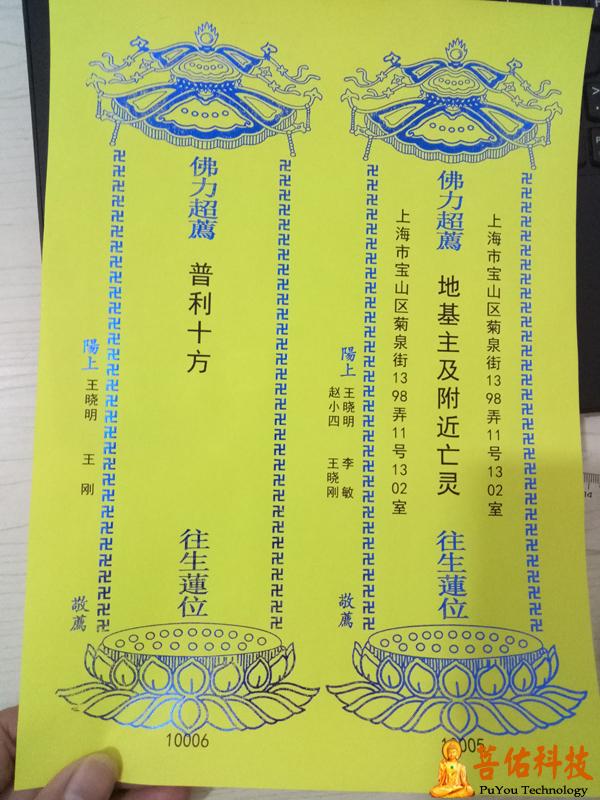 佛力超薦
上海市宝山区菊泉街1398弄11号1302室
地基主及附近亡灵
上海市宝山区菊泉街1398弄11号1302室
往生蓮位
陽上
王晓明 李敏
赵小四 王晓刚
敬薦
10005
佛力超薦
普利十方
往生蓮位
陽上
王晓明 王刚
敬薦
10006
菩佑科技
PuYou Technology